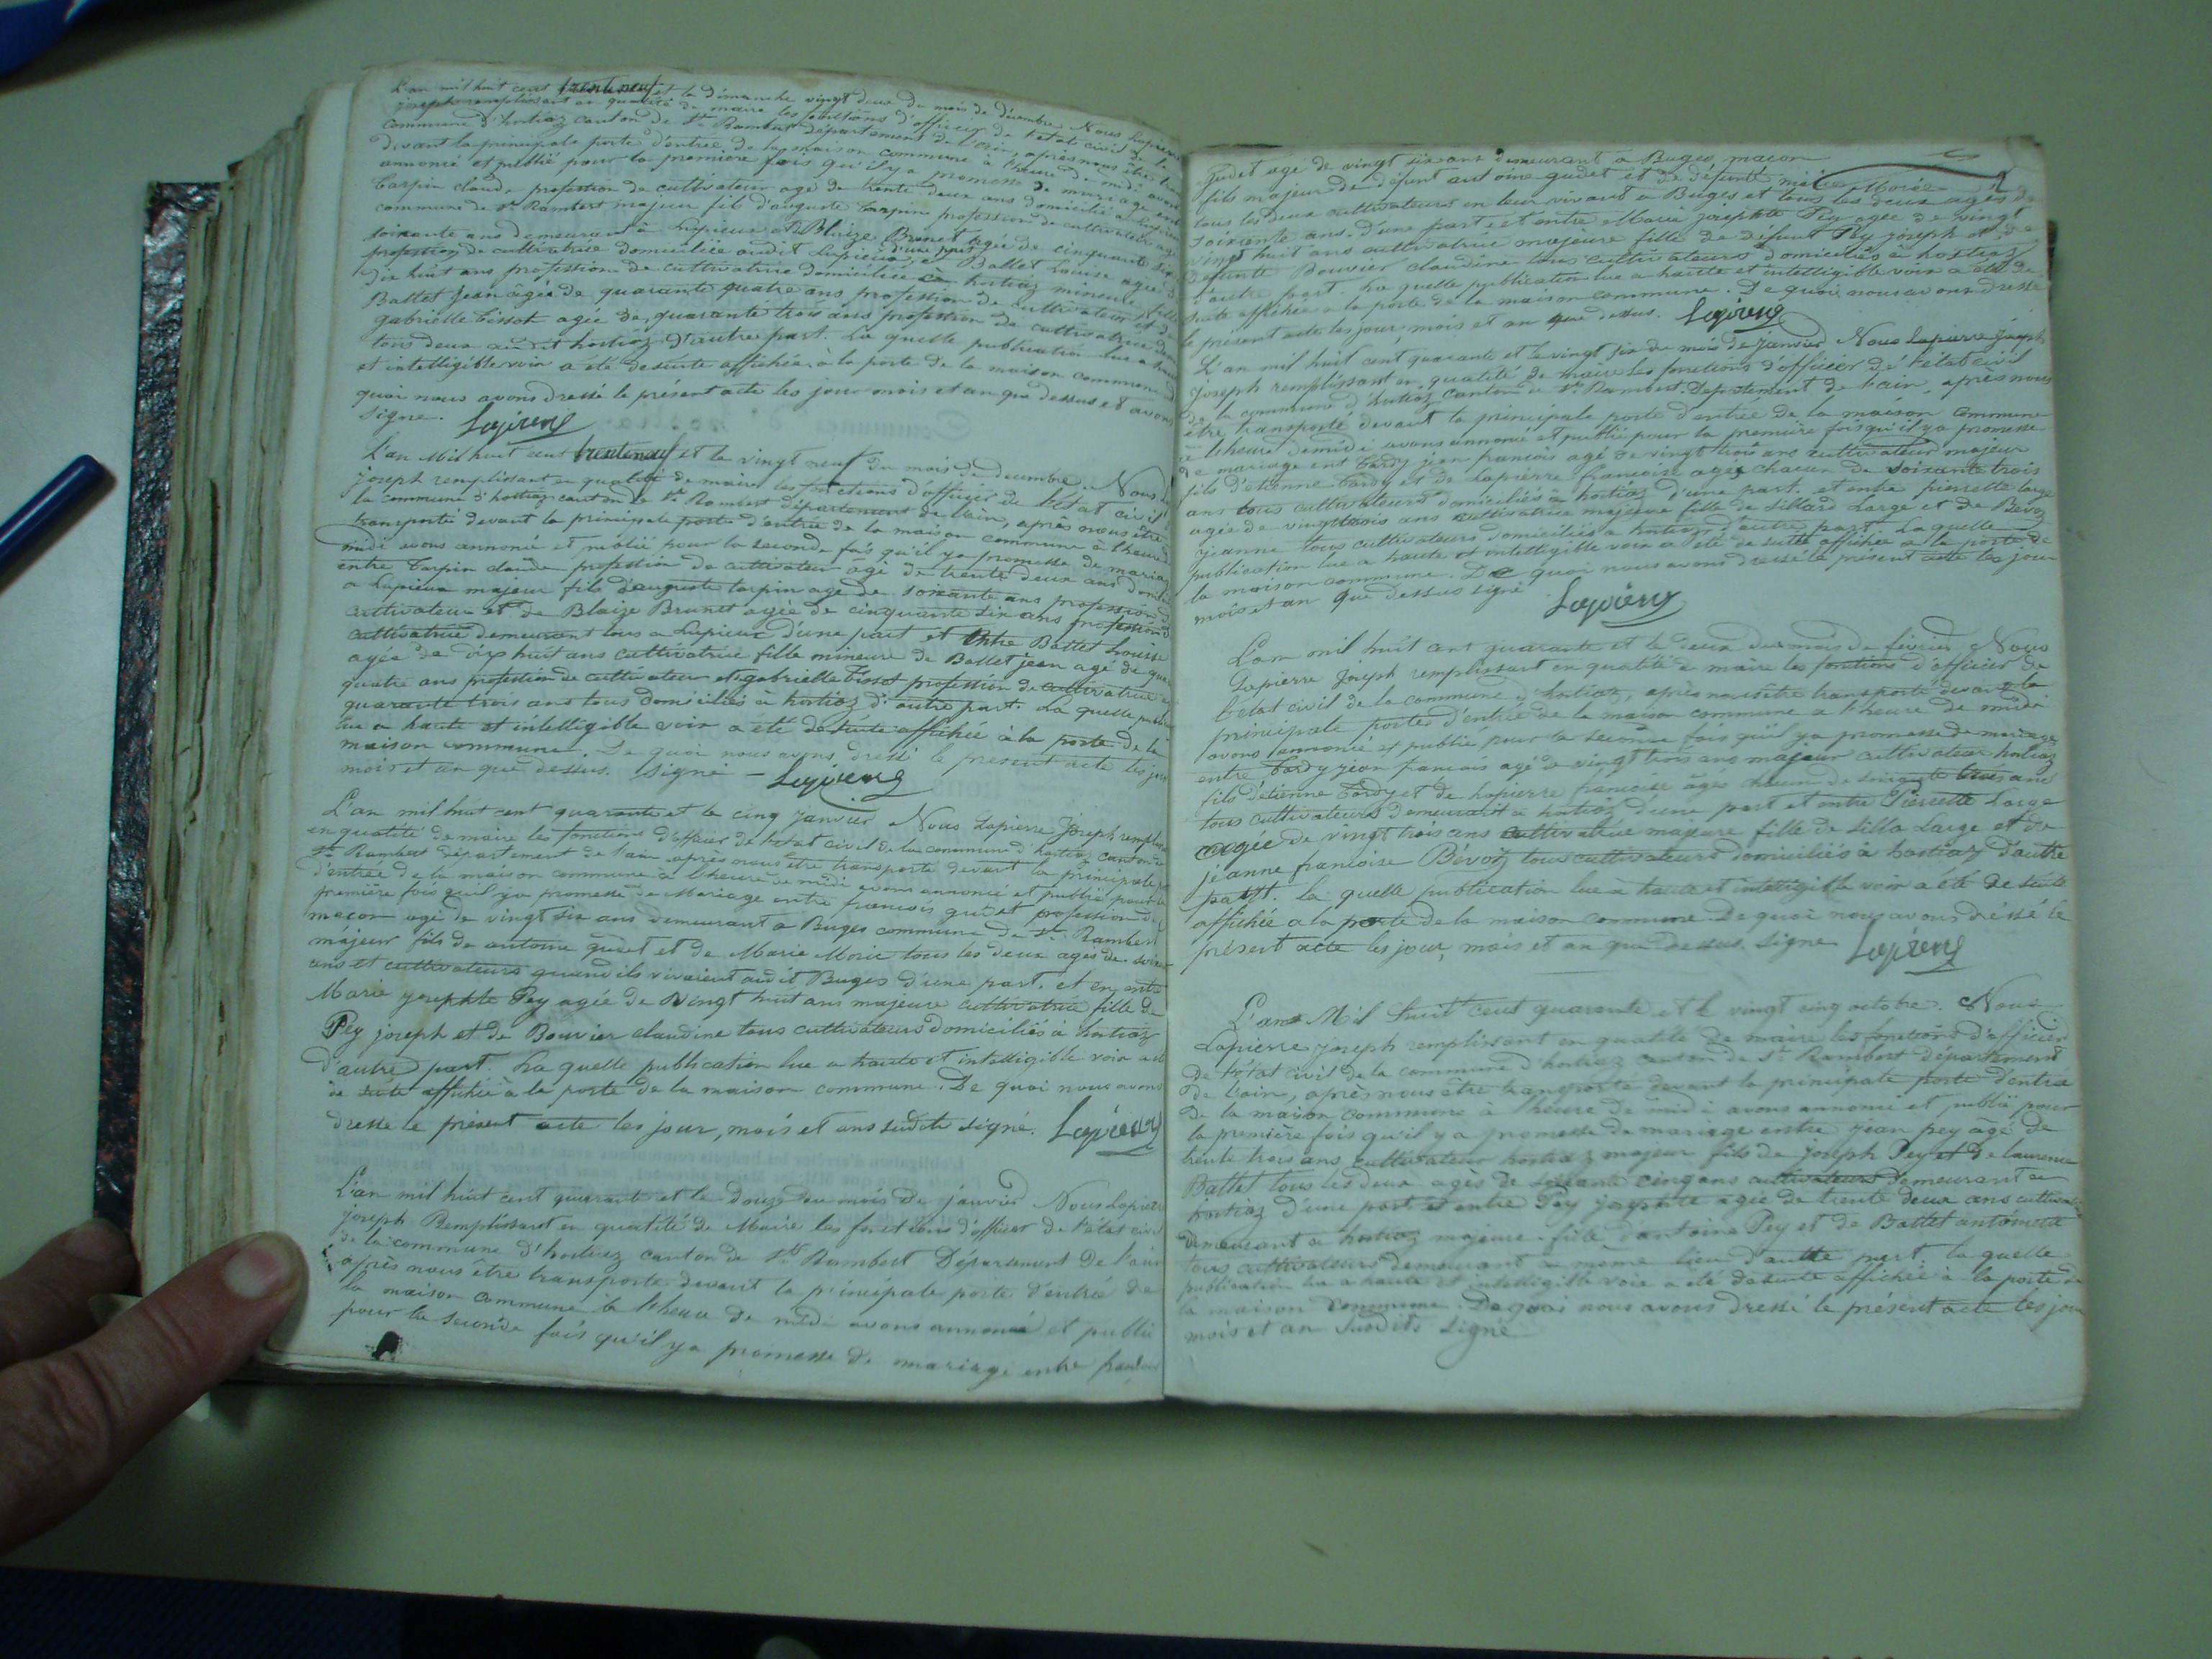 L'an mil huit cent trente neuf et le dimanche vingt deux du mois de décembre Nous Lapierre
joseph remplissant en qualité de maire les fonctions d'officier de l'état civil de la
commune d'hostiaz canton de St Rambert département de l'ain, après nous être
devant la principale porte d'entrée de la maison commune à l'heure de midi avons
annoncé et publié pour la première fois qu'il y a promesse de mariage entre
tarpin claude profession de cultivateur agé de trente deux ans domicilié a Lupieux
commune de St Rambert majeur fils d'auguste tarpin profession de cultivateur agé
soixante ans demeurant à Lupieux et Blaize Brunet agée de cinquante six
profession de cultivatrice domiciliée audit Lupieux d'une part et Ballet Louise agée de
dix huit ans profession de cultivatrice domiciliée à hostiaz mineure fille
Ballet jean âgée de quarante quatre ans profession de cultivateur et de
gabrielle tissot agée de quarante trois ans profession de cultivatrice
tous deux au dit hostiaz d'autre part. La quelle publication lue a haute
et intelligible voix a été desuite affichée à la porte de la maison commune
quoi nous avons dressé le présent acte les jour mois et an que dessus et avons
signé. Lapierre
L'an Mil huit cent trente neuf et le vingt neuf du mois de decembre. Nous
joseph remplissant en qualité de maire les fonctions d'officier de l'État civil
la commune d'hostiaz canton de St Rambert département de l'ain, après nous être
transporté devant la principale porte d'entrée de la maison commune à l'heure
midi avons annoncé et publié pour la seconde fois qu'il y a promesse de mariage
entre tarpin claude profession de cultivateur agé de trente deux ans
a Lupieux majeur fils d'auguste tarpin age de soixante ans profession de
cultivateur et de Blaize Brunet agée de cinquante six ans profession
cultivatrice demeurant tous a Lupieux d'une part et entre Ballet Louise
agée de dix huit ans cultivatrice fille mineure de Ballet jean agé de
quatre ans profession de cultivateur et gabrielle tissot profession de cultivatrice
quarante trois ans tous domiciliés à hostiaz d'autre part. La quelle
lue a haute et intelligible voix a été desuite affichée à la porte de la
maison commune. De quoi nous avons dressé le présent acte les jour
mois et an que dessus. signé - Lapierre
L'an mil huit cent quarante et le cinq janvier Nous Lapierre Joseph
en qualité de maire les fonctions d'officier de l'etat civil de la commune d'hostiaz canton de
St Rambert département de l'ain après nous être transporté devant la principale
d'entrée de la maison commune à l'heure de midi avons annoncé et publié pour la
première fois qu'il y a promesse de Mariage entre francois gudet profession de
maçon agé de vingt six ans demeurant a Buges commune de St Rambert
májeur fils de antoine gudet et de Marie Morie tous les deux ages de
ans et cultivateurs quand ils vivaient audit Buges d'une part, et en entre
Marie josephte Pey agée de Vingt huit ans majeure cultivatrice fille de
Pey joseph et de Bouvier claudine tous cultivateurs domiciliés à hostiaz
d'autre part. La quelle publication lue a haute et intelligible voix a
de suite affichée à la porte de la maison commune. De quoi nous avons
dressé le présent acte les jour, mois et ans susdits signé. Lapierre
L'an mil huit cent quarante et le Douze du mois de janvier Nous Lapierre
joseph Remplissant en qualité de Maire les fonctions d'officier de l'état civil
de la commune d'hostiaz canton de St Rambert Département De l'ain
après nous être transporté devant la principale porte d'entrée de
la maison commune à l'heure de midi avons annoncé et publié
pour la seconde fois qu'il y a promesse de mariage entre
gudet agé de vingt six ans demeurant a Buges maçon
fils majeur de défunt antoine gudet et de défunte Morie
tous les deux cultivateurs en leur vivant a Buges et tous les deux ages de
soixante ans. d'une part et entre Marie josephte Pey agee de vingt
vingt huit ans cultivatrice majeure fille de défunt Pey joseph et de
défunte Bouvier claudine tous cultivateurs domiciliés à hostiaz
d'autre part. La quelle publication lue a haute et intelligible voix a été de
suite affichée a la porte de la maison commune. De quoi nous avons dressé
le présent acte les jour, mois et an que dessus. Lapierre
L'an mil huit cent quarante et le vingt six du mois de Janvier Nous Lapierre Joseph
joseph remplissant en qualité de Maire les fonctions d'officier de l'état civil
de la commune d'hostiaz canton de St Rambert. Département de l'ain, après nous
être transporté devant la principale porte d'entrée de la maison commune
a l'heure demidi avons annoncé et publié pour la première fois qu'il y a promesse
de mariage ent tardy jean francois agé de vingt trois ans cultivateur majeur
fils d'étienne tardy et de Lapierre francoise agés chacun de soixante trois
ans tous cultivateurs domiciliés à hostiaz d'une part. et entre pierrette large
agée de vingt trois ans cultivatrice majeure fille de sillard Large et de Bévoz
jeanne tous cultivateurs domiciliés a hostiaz d'autre part. La quelle
publication lue a haute et intelligible voix a été de suite affichée a la porte de
la maison commune. De quoi nous avons dressé le présent acte les jour
mois et an que dessus signé Lapierre
L'an mil huit cent quarante et le deux du mois de février Nous
Lapierre Joseph remplissant en qualité de maire les fonctions d'officier de
l'état civil de la commune d'hostiaz, après nous être transporté devant la
principale porte d'entrée de la maison commune a l'heure de midi
avons annoncé et publié pour la seconde fois qu'il y a promesse de mariage
entre tardy jean francois agé de vingt trois ans majeur cultivateur hostiaz
fils d'etienne tardy et de lapierre francoise âgés chacun de soixante trois ans
tous cultivateurs demeurant a hostiaz d'une part et entre Pierrette Large
agée de vingt trois ans cultivatrice majeure fille de silla Large et de
jeanne francoise Bévoz tous cultivateurs domiciliés à hostiaz d'autre
part. la quelle publication lue à haute et intelligible voix a été de suite
affichée a la porte de la maison commune De quoi nous avons dréssé le
présent acte les jour, mois et an que dessus. signe Lapierre
L'an Mil huit cent quarante et le vingt cinq octobre. Nous
Lapierre joseph remplissant en qualité de maire les fonctions d'officier
de l'etat civil de la commune d'hostiaz canton de St Rambert département
de l'ain, après nous être transporté devant la principale porte d'entrée
de la maison commune à l'heure de midi avons annoncé et publié pour
la première fois qu'il y a promesse de mariage entre jean pey agé de
trente trois ans cultivateur hostiaz majeur fils de joseph Pey et de laurence
Ballet tous les deux agès de soixante cinq ans cultivateurs demeurant a
hostiaz d'une part et entre Pey josephte agée de trente deux ans cultivatrice
demeurant a hostiaz majeure fille d'antoine Pey et de Ballet antoinette
tous cultivateurs demeurant au même lieu d'autre part. la quelle
publication lue a haute et intelligible voix a été desuite affichée à la porte de
la maison commune. De quoi nous avons dressé le présent acte les jour
mois et an susdits signé